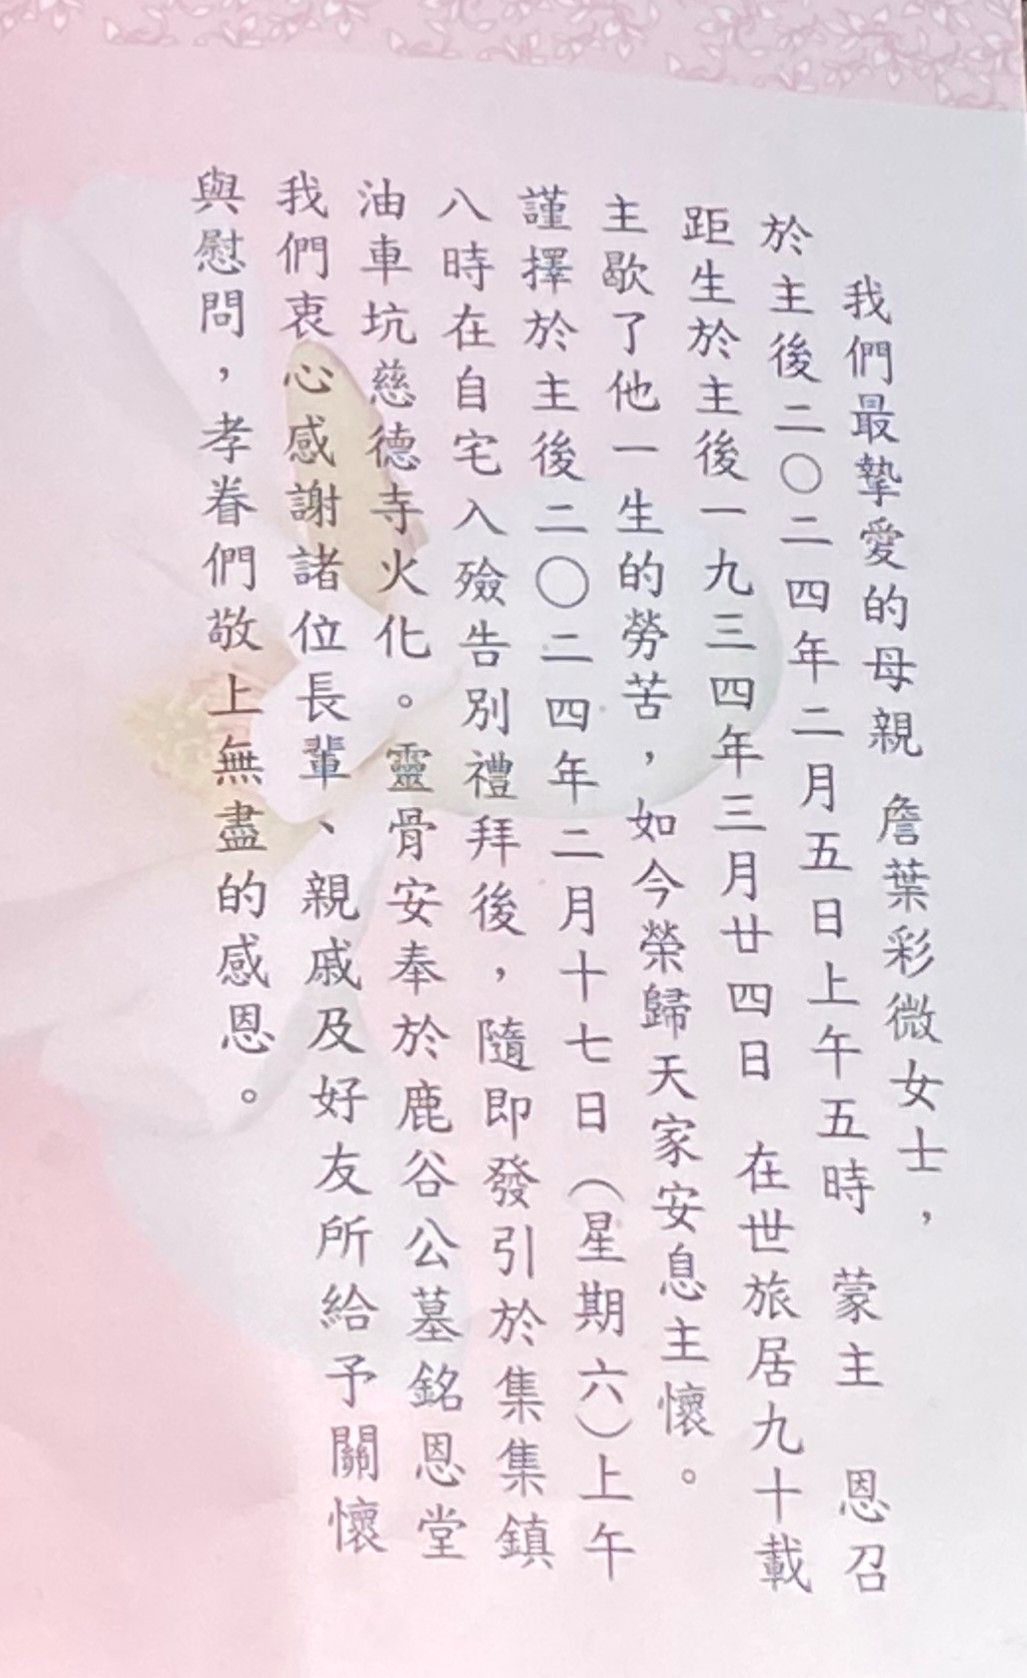 我們最摯愛的母親 詹葉彩微女士，
於主後二〇二四年二月五日上午五時 蒙主 恩召
距生於主後一九三四年三月廿四日 在世旅居九十載
主歇了他一生的勞苦，如今榮歸天家安息主懷。
謹擇於主後二〇二四年二月十七日（星期六）上午
八時在自宅入殮告別禮拜後，隨即發引於集集鎮
油車坑慈德寺火化。靈骨安奉於鹿谷公墓銘恩堂
我們衷心感謝諸位長輩、親戚及好友所給予關懷
與慰問，孝眷們敬上無盡的感恩。